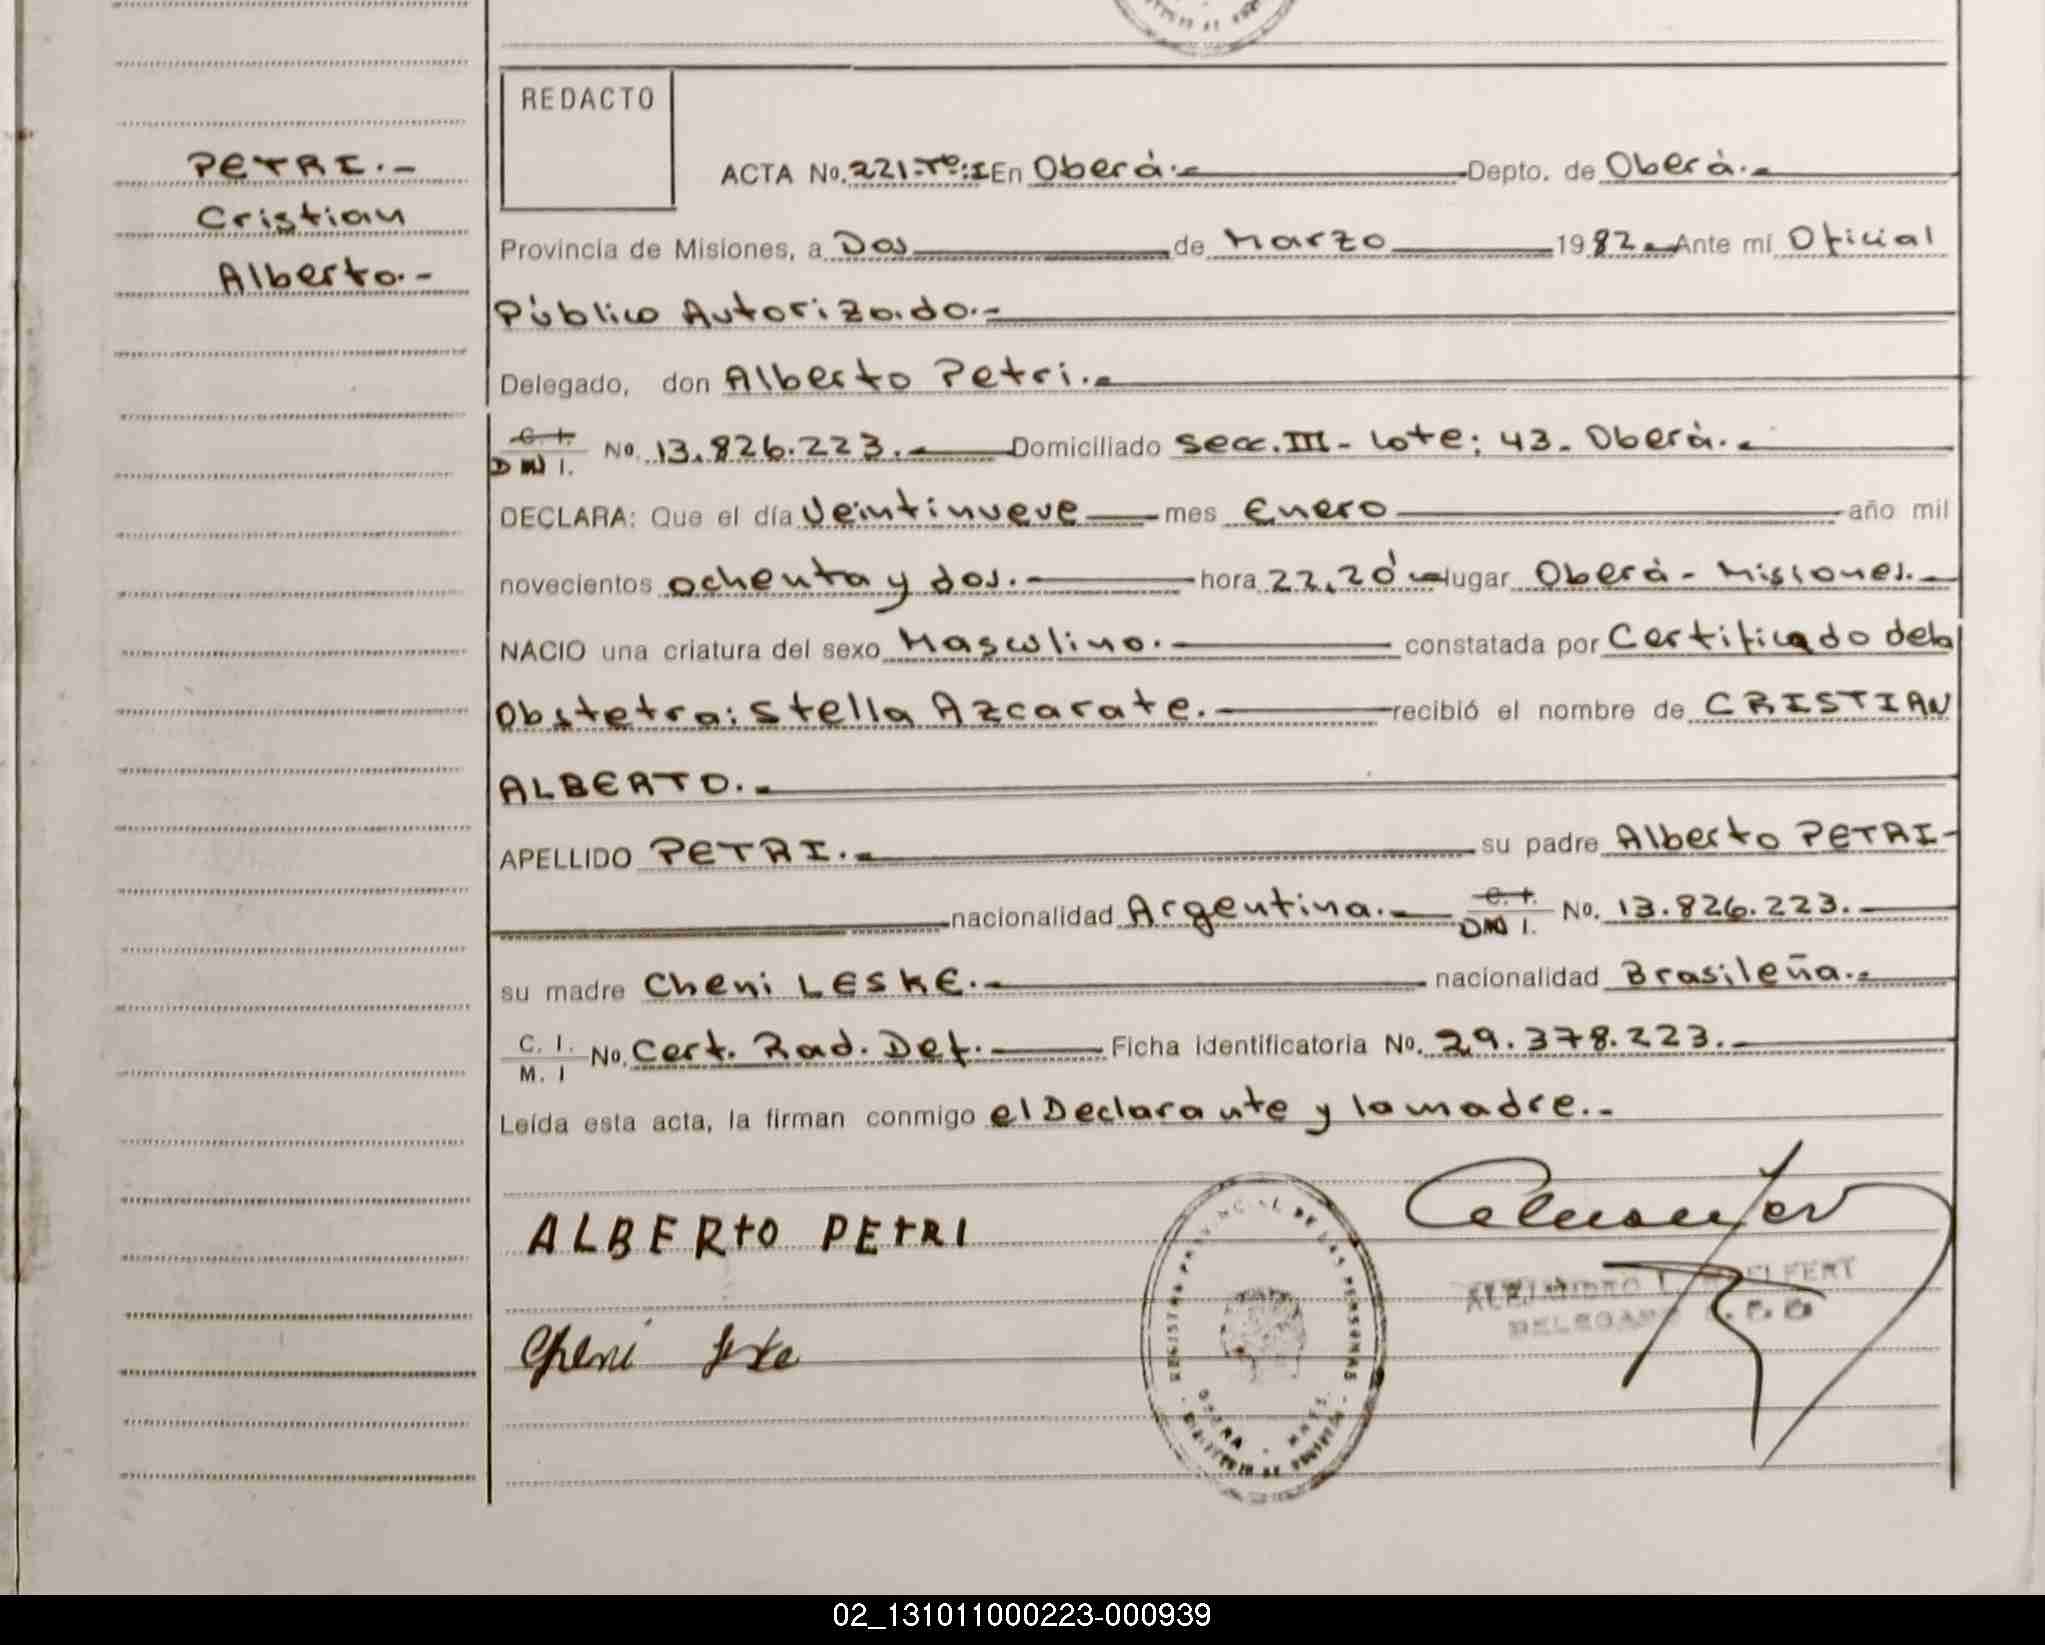 REDACTO
PETRI.-
Cristian
Alberto.-
ACTA No. 221-Tº:I En Oberá.- Depto. de Oberá.-
Provincia de Misiones, a Dos de Marzo 1982.- Ante mí Oficial
Público Autorizado.-
Delegado, don Alberto Petri.-
C. I.
DNI. No. 13.826.223.- Domiciliado Secc. III - Lote: 43 - Oberá.-
DECLARA: Que el día Veintinueve mes Enero año mil
novecientos ochenta y dos.- hora 22,20' lugar Oberá - Misiones.-
NACIO una criatura del sexo Masculino.- constatada por Certificado de la
Obstetra: Stella Azcarate.- recibió el nombre de CRISTIAN
ALBERTO.-
APELLIDO PETRI.- su padre Alberto PETRI-
nacionalidad Argentina.- C. I. DNI. No. 13.826.223.-
su madre Cheni LESKE.- nacionalidad Brasileña.-
C. I.
M. I No. Cert. Rad. Def.- Ficha identificatoria No. 29.378.223.-
Leída esta acta, la firman conmigo el Declarante y la madre.-
ALBERTO PETRI
Cheni Leske
REGISTRO PROVINCIAL DE LAS PERSONAS
OBERA - MNES.
MINISTERIO DE GOBIERNO
ALEJANDRO
DELEGADO
02_131011000223-000939